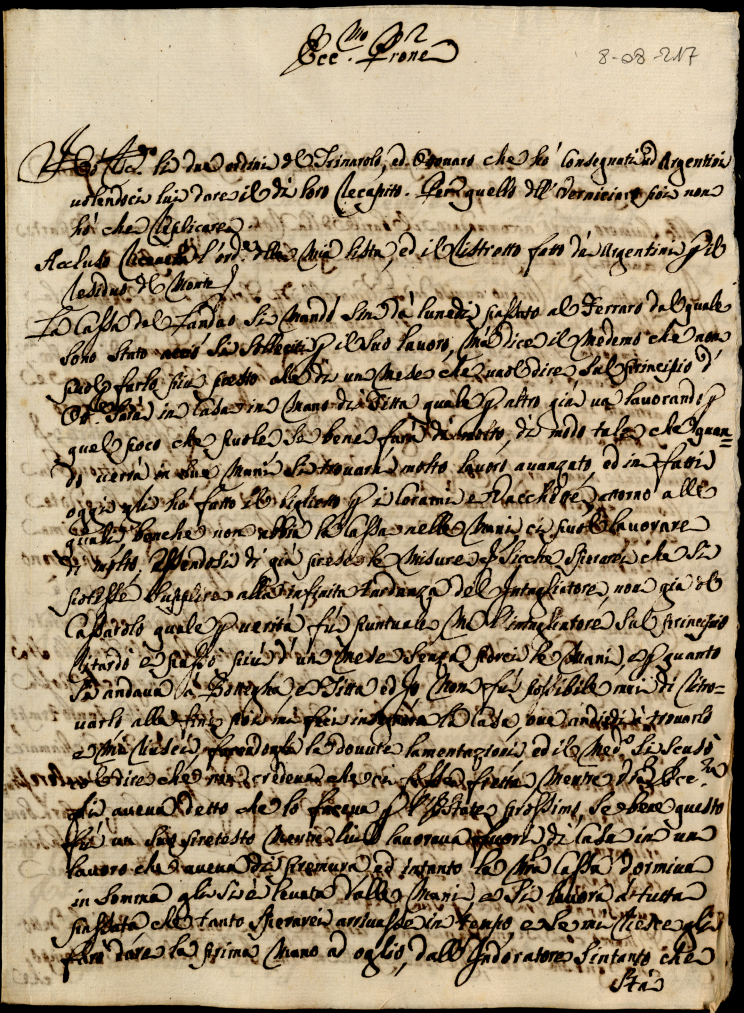 Ecc.mo Prone
8-08-217
Hò li due ordini del Trinarolo, ed Ottonaro che hò Consegnati ad Argentini
volendoci lui dare il di loro Recapito. Per quello dell' Verniciaro poi non
hò che Replicare
Accluso l'ord.e della Mia lista, ed il Ristretto fatto dà Argentini p il
Residuo del Monte
La Cassa del Landao Si Mandò Sin dà lunedi passato al Ferraro dal quale
Sono Stato acciò Si Solleciti p il Suo lavoro, Mà dice il Medemo che non
puol farlo più presto alle di un Mese che vuol dire Sul principio d'
Ott.e Sarà in Casa in Mano di Titta quale p altro già và lavorando p
quel poco che puole Se bene farà di molto, di modo tale che quan=
do verrà in Sue Mani Si trovarà molto lavoro avanzato, ed in fatti
oggi gli hò fatto il biglietto p i Corami e Vacchette attorno alle
quali benche non abbia la Cassa nelle Mani, ci puole lavorare
di molto, Essendosi di già prese le Misure Sicche Sperarei che Si
potesse Supplire alla infinita tardanza del Intagliatore, non già del
Cassarolo quale p verità fù puntuale Mà l'intagliatore Sul principio
Ritardò e passò più d'un Mese Senza porci le Mani, e p quanto
Si andava à Bottegha, e Titta ed Io Non fù possibile mai di Ritro=
varlo alla fine poi mi feci insegnare la Casa ove andiedi à trovarlo
e Mi Riuscì facendogli le dovute lamentazioni ed il Med.o Si Scusò
dire che non credeva che ci fosse fretta Mentre V.ra Ecc.za
gli aveva detto che lo faceva p l'Estate prossimo, Se bene questo
fù un Suo pretesto Mentre lui lavorava fuori di Casa in un
lavoro che aveva di premura ed intanto la Mia Cassa dormiva
in Somma gli Si è levata dalle Mani, e Si lavora à tutta
passata che tanto Sperarei arrivasse in tempo, e Se mi Riesce gli
farò dare la prima Mano ad oglio, dall' Indoratore Sintanto che
Stà